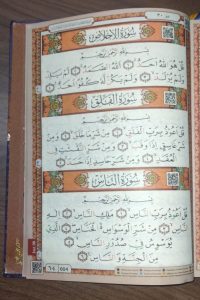 سُورَةُ الْإِخْلَاصِ
بِسْمِ اللَّهِ الرَّحْمَٰنِ الرَّحِيمِ
قُلْ هُوَ اللَّهُ أَحَدٌ ۝ اللَّهُ الصَّمَدُ ۝ لَمْ يَلِدْ
وَلَمْ يُولَدْ ۝ وَلَمْ يَكُنْ لَهُ كُفُوًا أَحَدٌ ۝
سُورَةُ الْفَلَقِ
بِسْمِ اللَّهِ الرَّحْمَٰنِ الرَّحِيمِ
قُلْ أَعُوذُ بِرَبِّ الْفَلَقِ ۝ مِنْ شَرِّ مَا خَلَقَ ۝ وَمِنْ
شَرِّ غَاسِقٍ إِذَا وَقَبَ ۝ وَمِنْ شَرِّ النَّفَّاثَاتِ فِي
الْعُقَدِ ۝ وَمِنْ شَرِّ حَاسِدٍ إِذَا حَسَدَ ۝
سُورَةُ النَّاسِ
بِسْمِ اللَّهِ الرَّحْمَٰنِ الرَّحِيمِ
قُلْ أَعُوذُ بِرَبِّ النَّاسِ ۝ مَلِكِ النَّاسِ ۝ إِلَٰهِ
النَّاسِ ۝ مِنْ شَرِّ الْوَسْوَاسِ الْخَنَّاسِ ۝ الَّذِي
يُوَسْوِسُ فِي صُدُورِ النَّاسِ ۝
مِنَ الْجِنَّةِ وَالنَّاسِ ۝
604